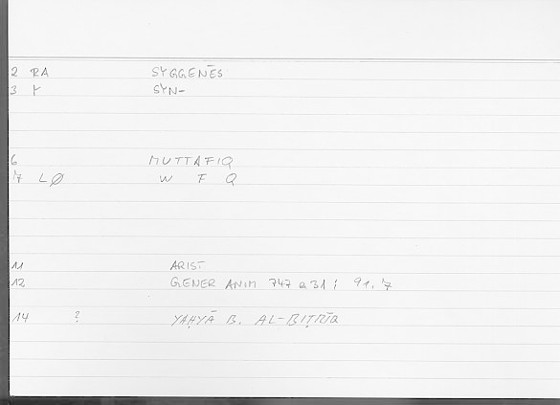 2 RA SYGGENĒS
3 Y SYN-
6 MUTTAFIQ
7 LØ W F Q
11 ARIST.
12 GENER ANIM 747 a 31 ; 91.7
14 ? YAḤYĀ B. AL-BIṬRĪQ